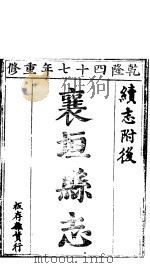 乾隆四十七年重修
續志附後
襄垣縣志
板存雜貨行